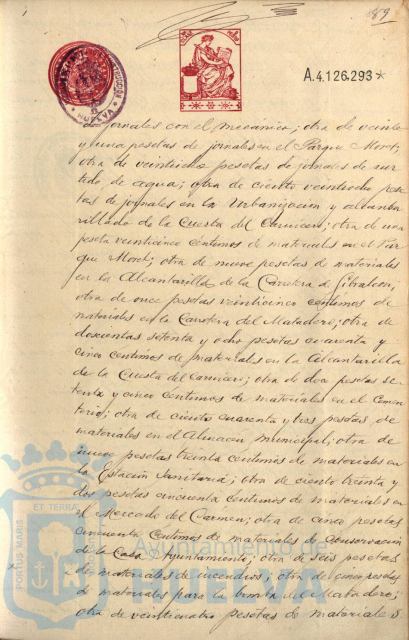 89
A.4.126.293*
HUELVA
de jornales con el mecánico; otra de veinte
y una pesetas de jornales en el Parque Moret;
otra de veintidos pesetas de jornales de sur
tido de agua; otra de ciento veintiocho pese
tas de jornales en la Urbanizacion y alcanta
rillado de la Cuesta del Carnicero; otra de una
peseta veinticinco centimos de materiales en el Par
que Moret; otra de nueve pesetas de materiales
en la Alcantarilla de la Carretera de Gibraleon;
otra de once pesetas veinticinco centimos de
materiales en la Carretera del Matadero; otra de
doscientas setenta y ocho pesetas cuarenta y
cinco centimos de materiales en la Alcantarilla
de la Cuesta del carnicero; otra de dos pesetas se
tenta y cinco centimos de materiales en el Cemen
terio; otra de ciento cuarenta y tres pesetas de
materiales en el Almacen municipal; otra de
nueve pesetas treinta centimos de materiales en
la Estacion Sanitaria; otra de ciento treinta y
dos pesetas cincuenta centimos de materiales en
el Mercado del Carmen; otra de cinco pesetas
cincuenta centimos de materiales de conservacion
de la Casa Ayuntamiento; otra de seis pesetas
de materiales de incendios; otra de cinco pesetas
de materiales para la bomba del Matadero;
otra de veinticuatro pesetas de materiales
PORTUS MARIS
ET TERRAE
Ayuntamiento de
HUELVA